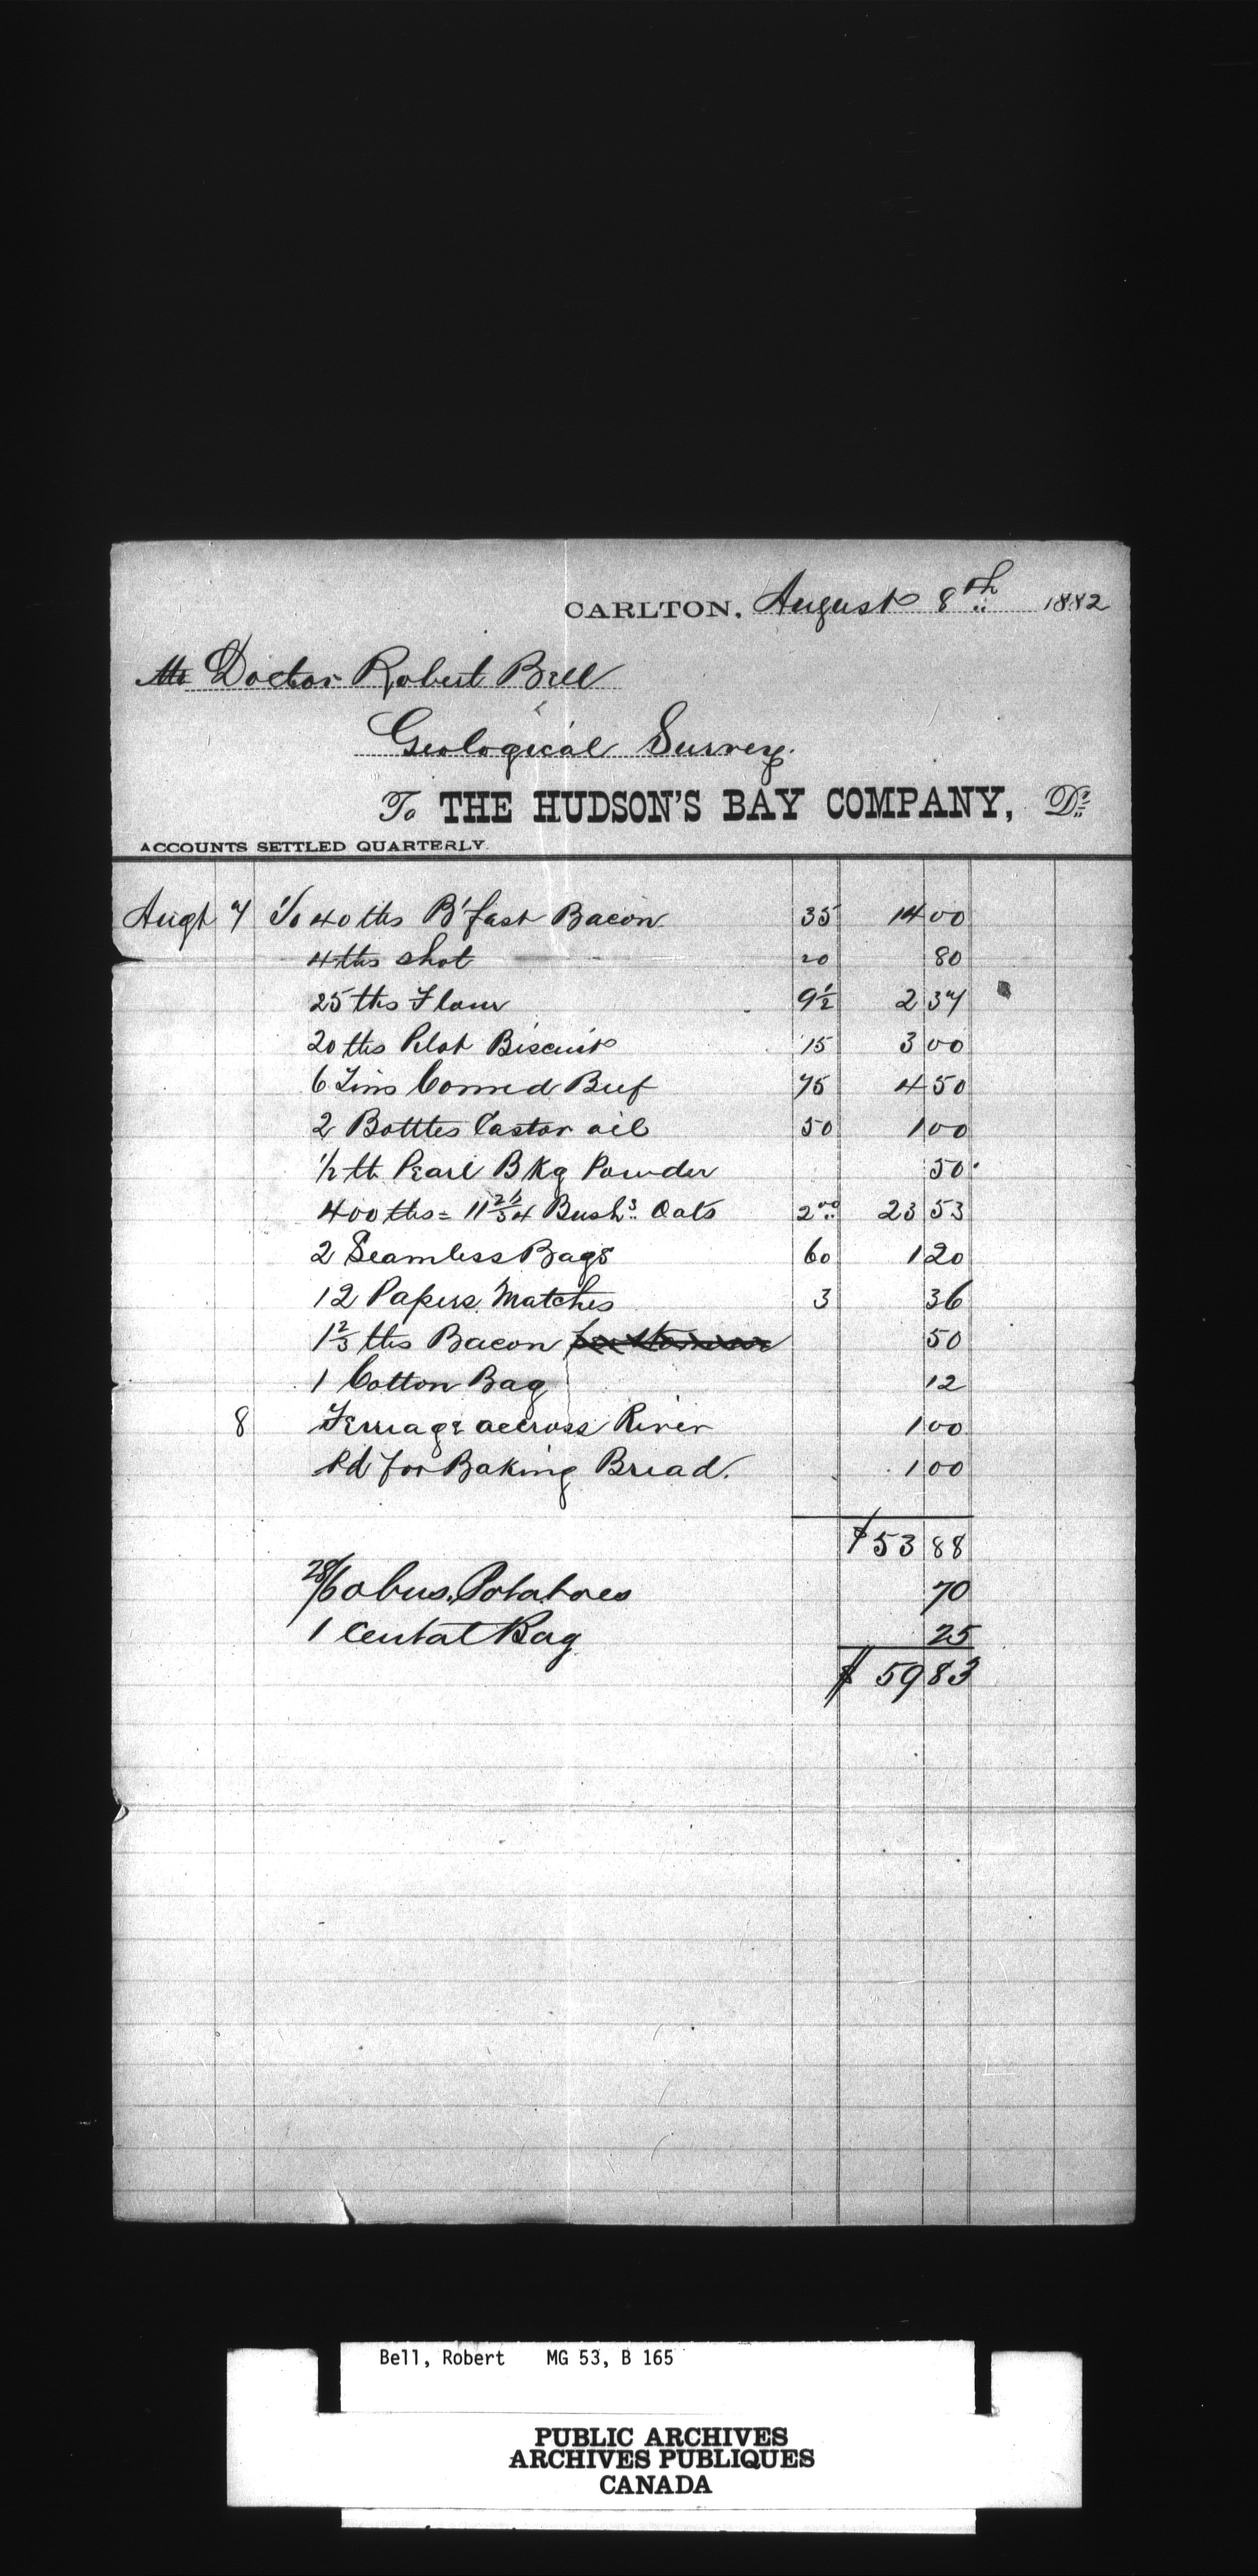 CARLTON, August 8th 1882
Mr Doctor Robert Bell
Geological Survey.
To THE HUDSON'S BAY COMPANY, Dr
ACCOUNTS SETTLED QUARTERLY.
Augt 7 To 40 lbs B'fast Bacon 35 14 00
4 lbs Shot 20 80
25 lbs Flour 9½ 2 37
20 lbs Pilot Biscuit 15 3 00
6 Tins Corned Beef 75 4 50
2 Botttes Castor oil 50 1 00
½ lb Pearl Bkg Powder 50
400 lbs = 11 26/34 Bushs. Oats 2.00 23 53
2 Seamless Bags 60 1 20
12 Papers Matches 3 36
1⅔ lbs Bacon 50
1 Cotton Bag 12
8 Ferriage accross River 1 00
Pd for Baking Bread. 1 00
$53 88
28/60 bus. Potatoes 70
1 Cental Bag 25
$ 59 83
Bell, Robert MG 53, B 165
PUBLIC ARCHIVES
ARCHIVES PUBLIQUES
CANADA